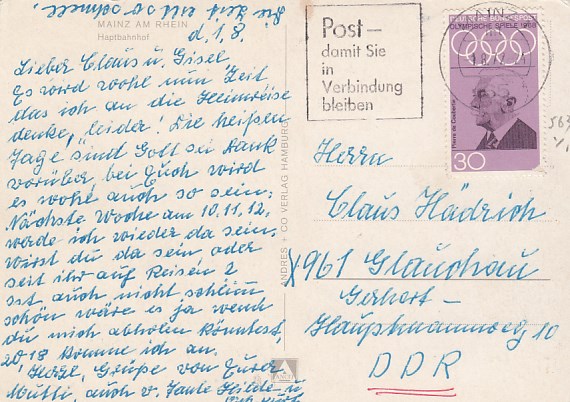 die Zeit vergeht so schnell.
MAINZ AM RHEIN
Hauptbahnhof
d. 1.8.
Lieber Claus u. Gisel,
Es wird wohl nun Zeit
das ich an die Heimreise
denke, "leider! Die heißen
Tage sind Gott sei Dank
vorüber, bei Euch wird
es wohl auch so sein.
Nächste Woche am 10, 11, 12,
werde ich wieder da sein.
wirst du da sein, oder
seit ihr auf Reisen?
Ist auch nicht schlimm
schön wäre es ja wenn
du mich abholen könntest,
20,18 komme ich an.
Herzl. Grüße von Eurer
Mutti, auch v. Tante Hilde u.
ANDRES + CO VERLAG HAMBURG
Post-
damit Sie
in
Verbindung
bleiben
DEUTSCHE BUNDESPOST
OLYMPISCHE SPIELE 1968
Pierre de Coubertin
30
563
Herrn
Claus Hädrich
X961 Glauchau
Gerhart-
Hauptmannweg 10
DDR